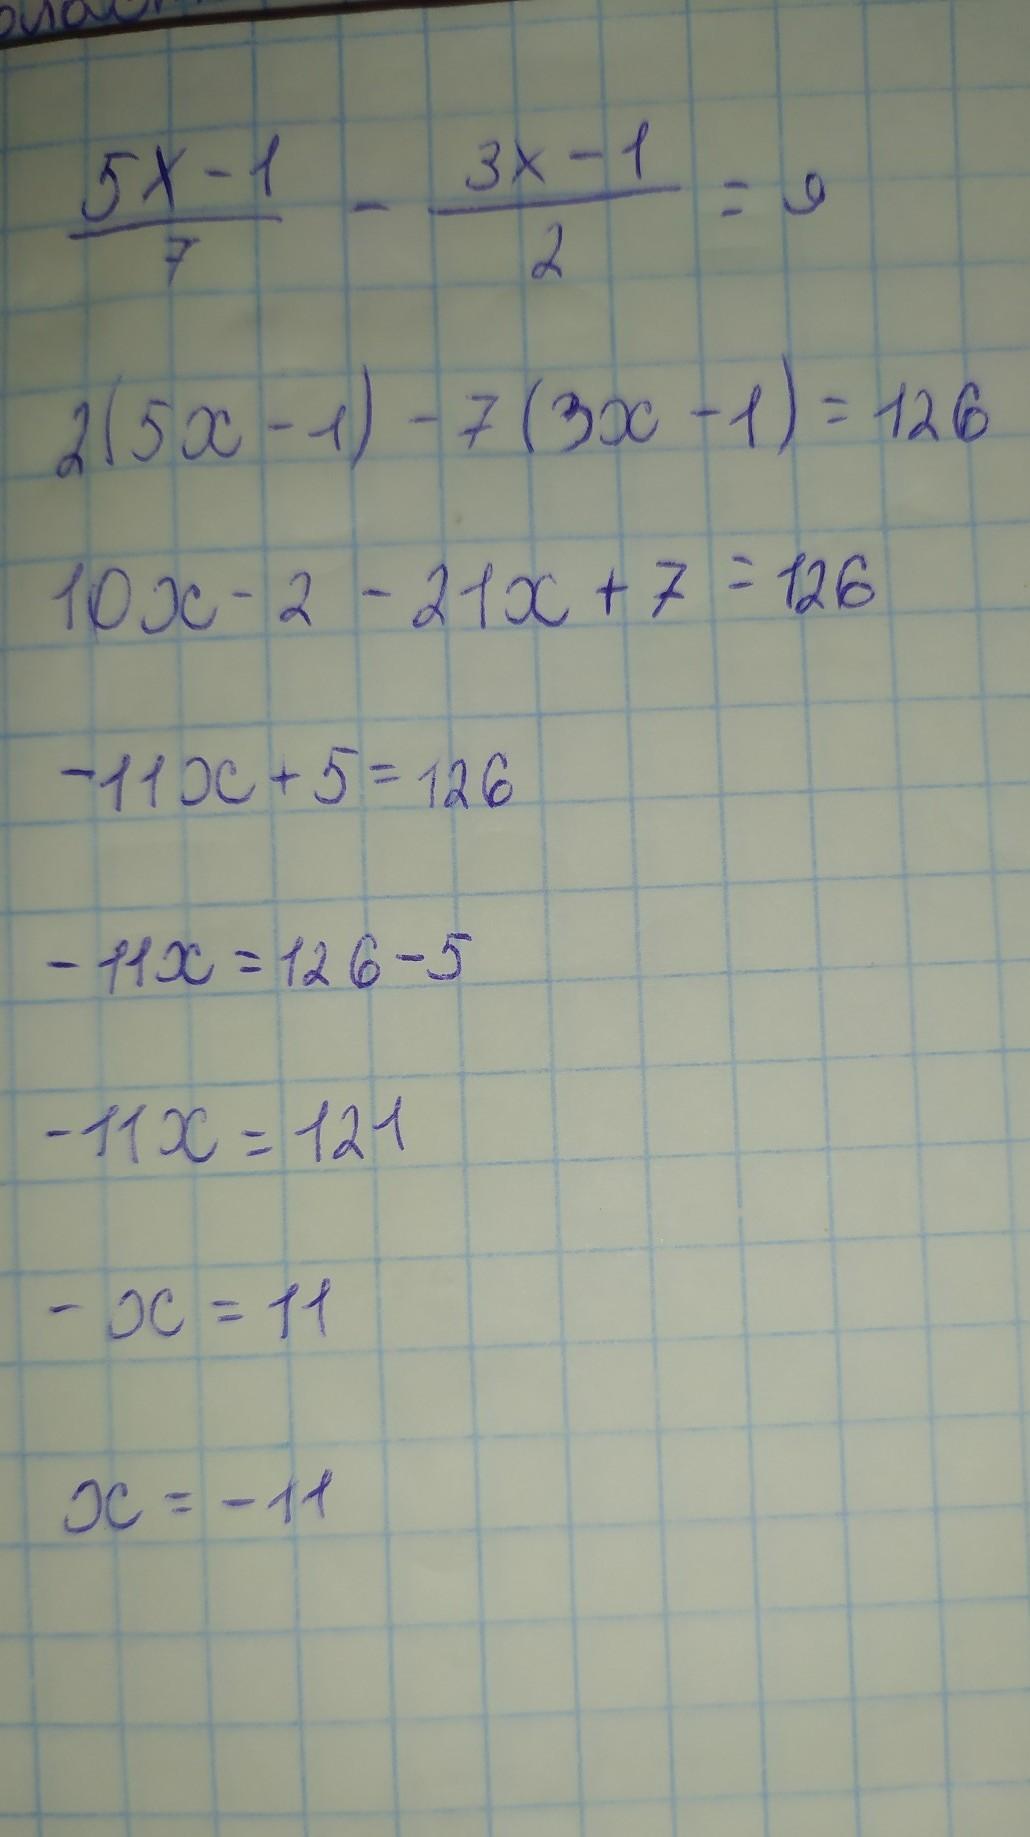 5x-1/7 - 3x-1/2 = 9
2(5x-1) - 7(3x-1) = 126
10x - 2 - 21x + 7 = 126
-11x + 5 = 126
-11x = 126 - 5
-11x = 121
-x = 11
x = -11